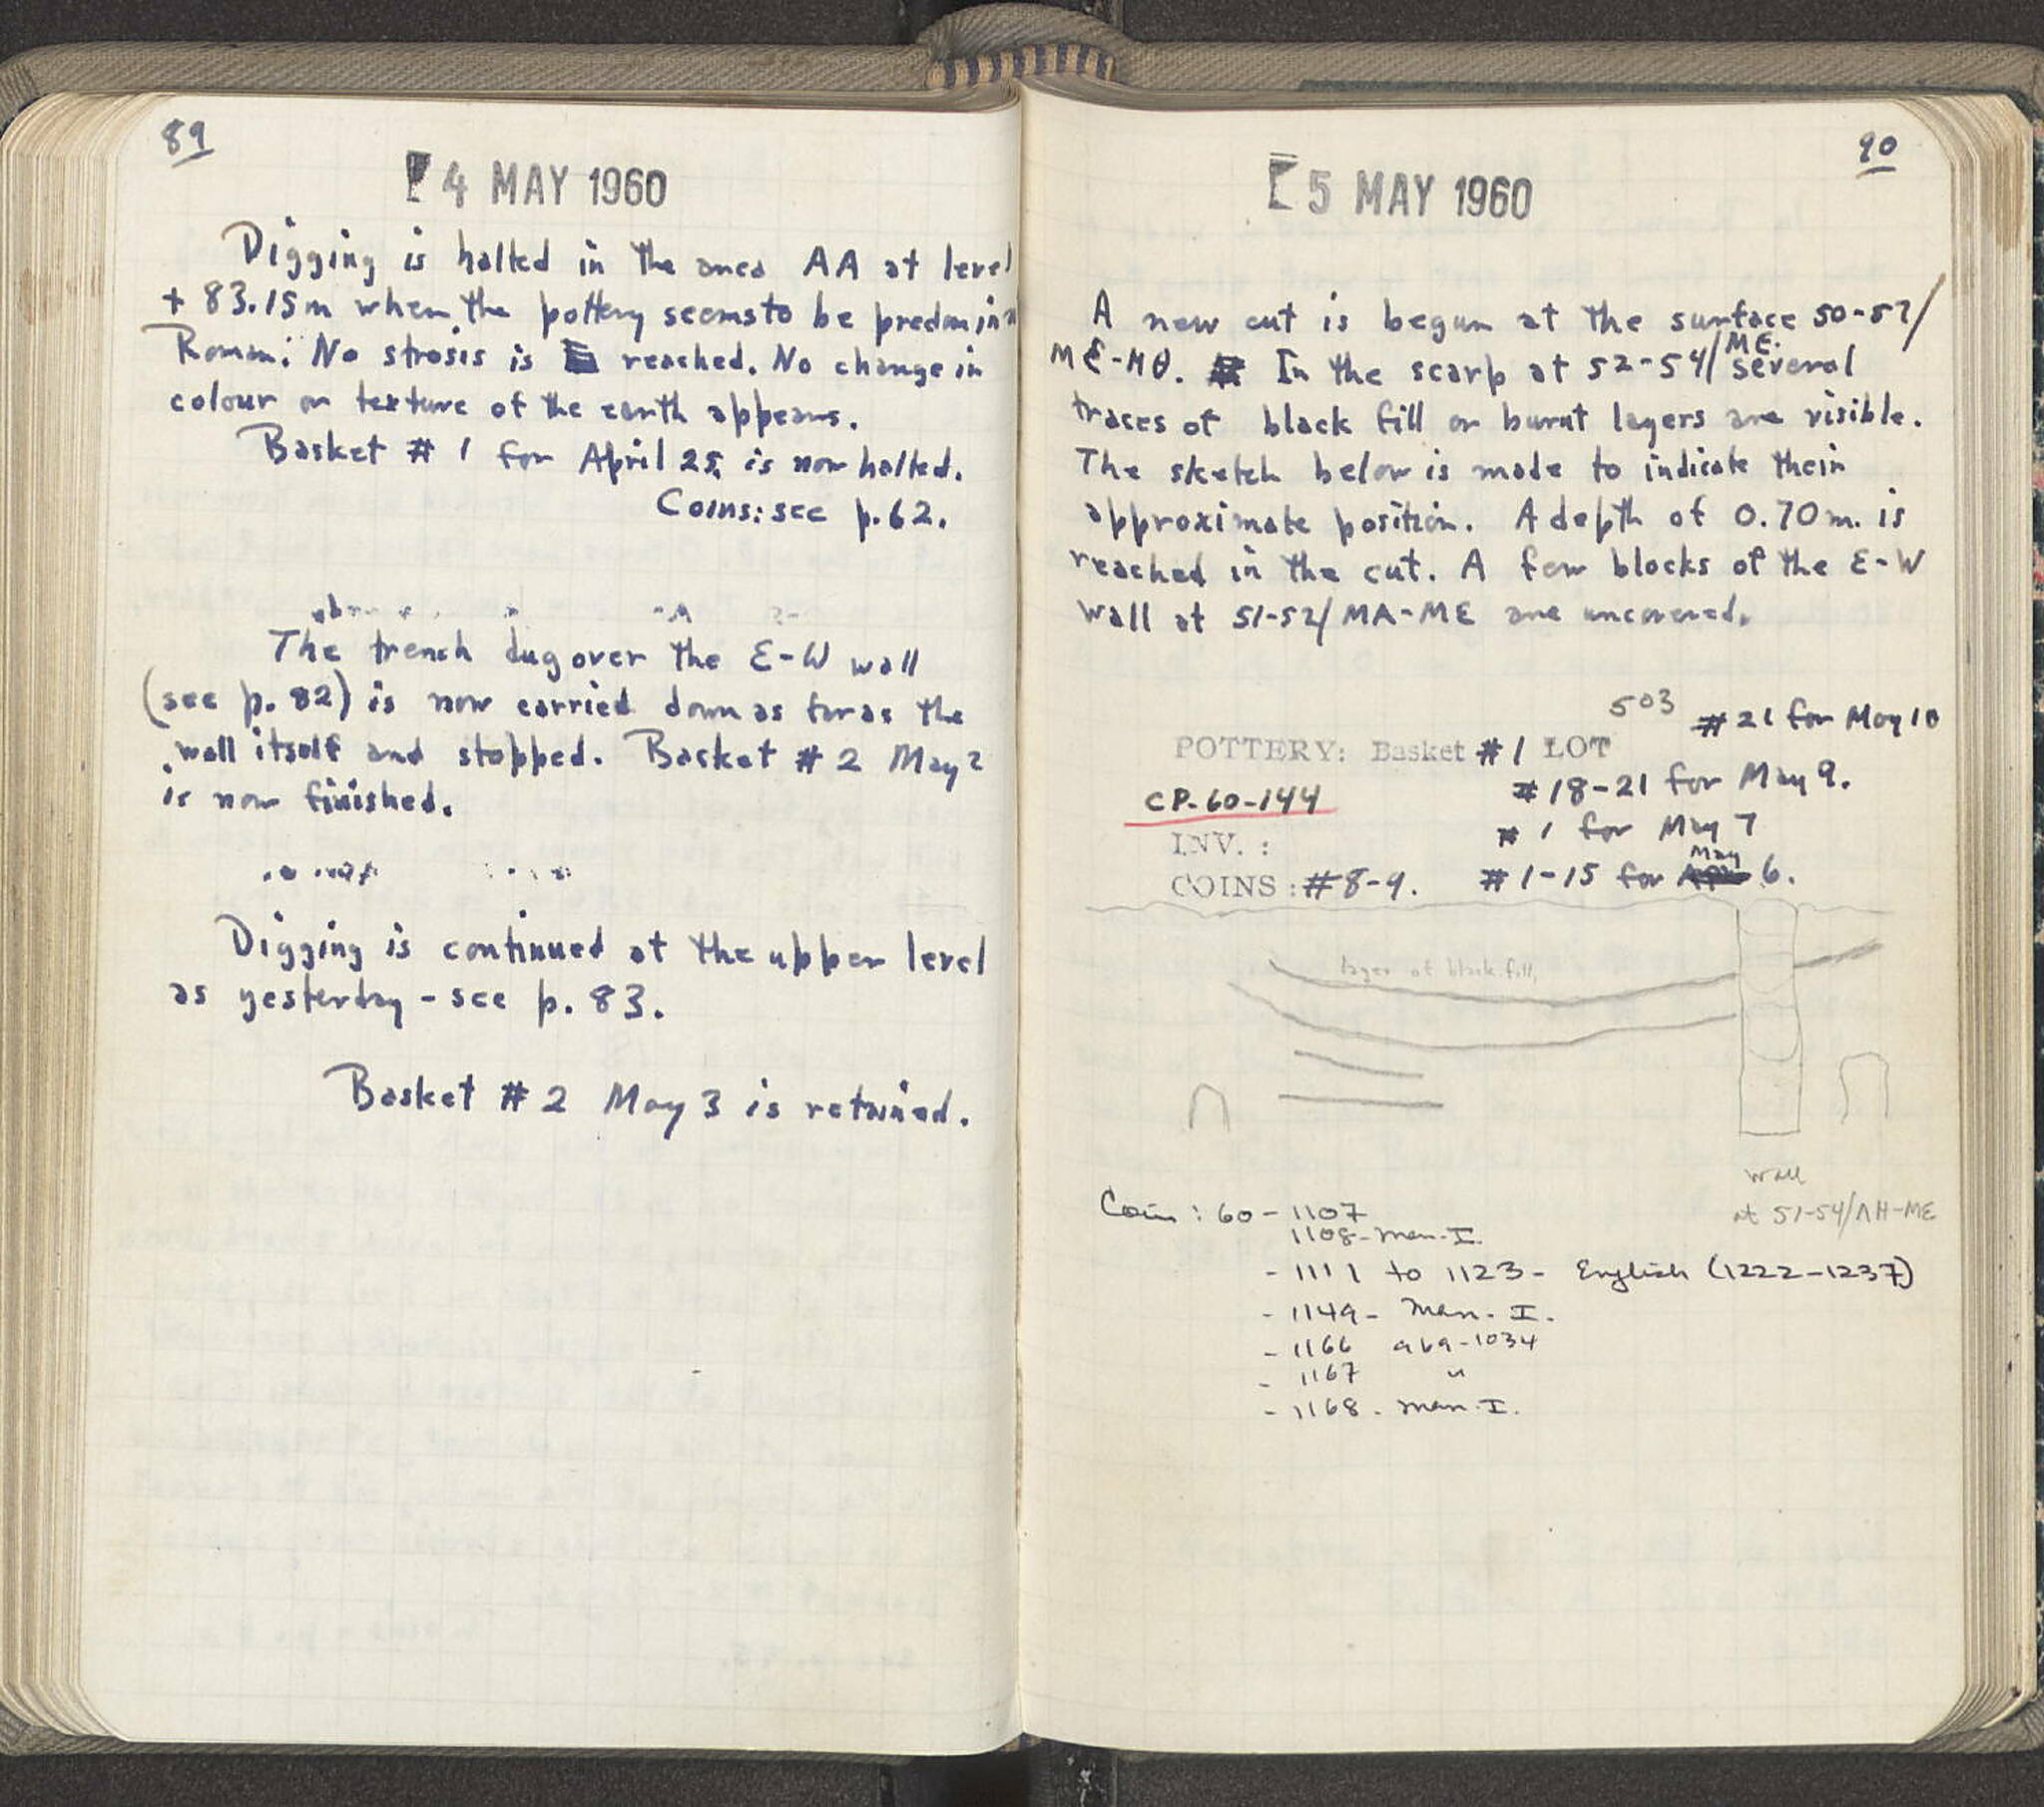 89
4 MAY 1960
Digging is halted in the area AA at level
+ 83.15m when the pottery seems to be predomin
Roman. No strosis is reached. No change in
colour or texture of the earth appears.
Basket # 1 for April 25 is now halted.
Coins: see p. 62.
The trench dug over the E-W wall
(see p. 82) is now carried down as far as the
wall itself and stopped. Basket # 2 May 2
is now finished.
Digging is continued at the upper level
as yesterday - see p. 83.
Basket # 2 May 3 is retained.
90
5 MAY 1960
A new cut is begun at the surface 50-57/
ME-MΘ. In the scarp at 52-54/ME. several
traces of black fill or burnt layers are visible.
The sketch below is made to indicate their
approximate position. A depth of 0.70 m. is
reached in the cut. A few blocks of the E-W
wall at 51-52/MA-ME are uncovered.
503 # 21 for May 10
POTTERY: Basket # 1 LOT
# 18-21 for May 9.
CP-60-144
# 1 for May 7
INV. :
COINS: # 8-9. # 1-15 for May 6.
layer of black fill
wall
at 51-54/ΛH-ME
Coin: 60-1107
1108-Man. I.
- 1111 to 1123 - English (1222-1237)
- 1149 - Man. I.
- 1166 969-1034
- 1167 "
- 1168 - Man. I.